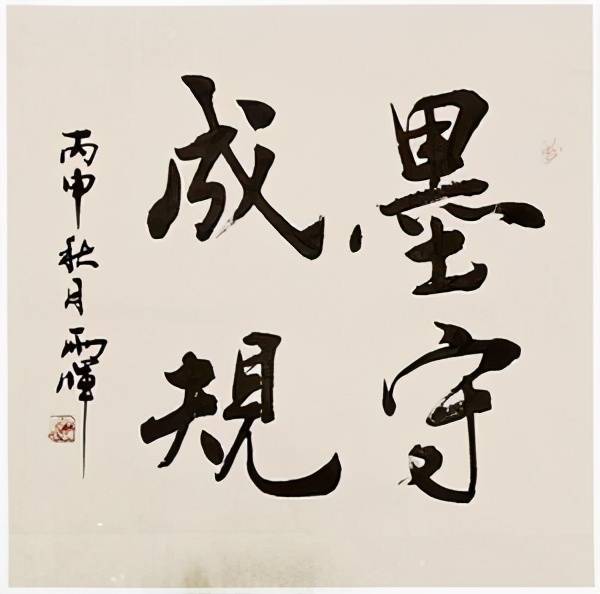 墨守
成規
丙申秋月雨暉